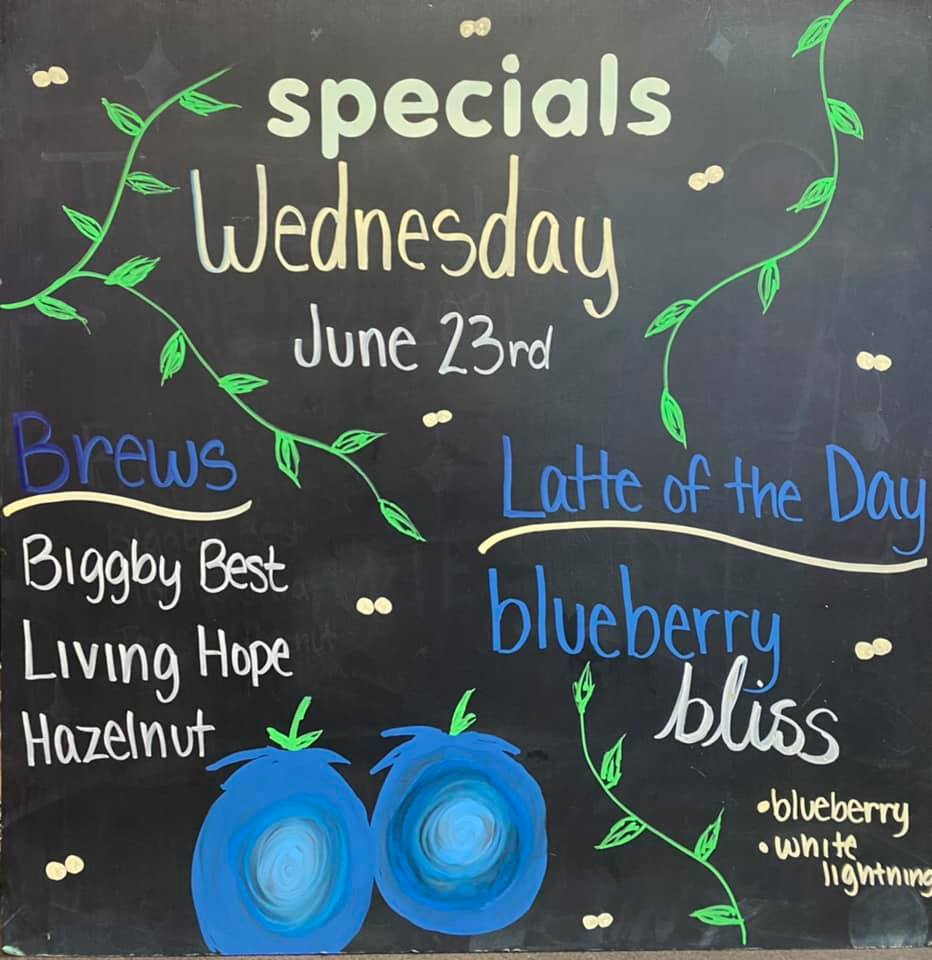 specials
Wednesday
June 23rd
Brews
Biggby Best
Living Hope
Hazelnut
Latte of the Day
blueberry
bliss
•blueberry
•white
lightning